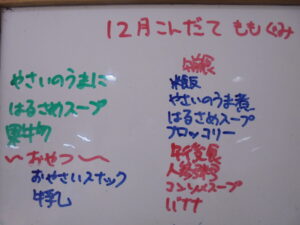 12月こんだて ももぐみ
やさいのうまに
はるさめスープ
〜おやつ〜
おやさいスナック
牛乳
米飯
やさいのうま煮
はるさめスープ
ブロッコリー
コンソメスープ
バナナ